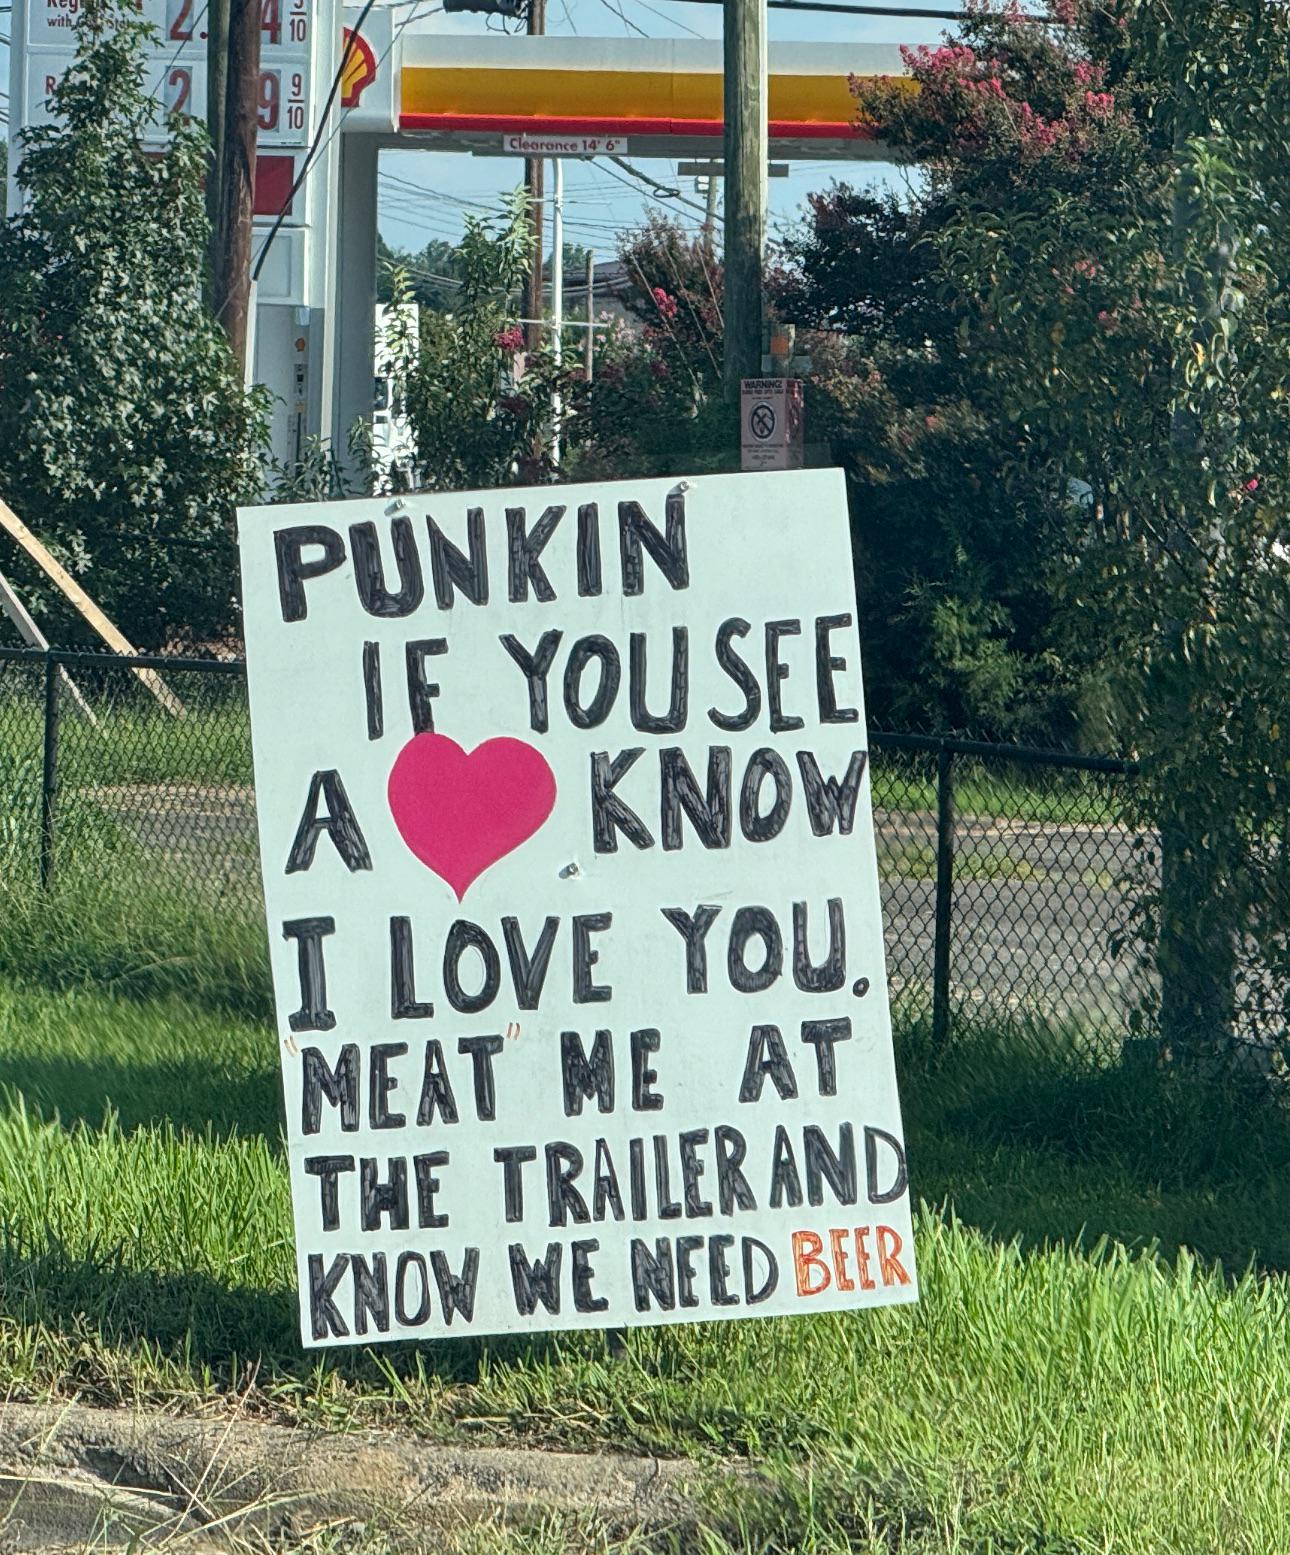 with
2. 4 9/10
R
2 9 9/10
Clearance 14' 6"
WARNING
PUNKIN
IF YOU SEE
A KNOW
I LOVE YOU.
"MEAT" ME AT
THE TRAILER AND
KNOW WE NEED BEER